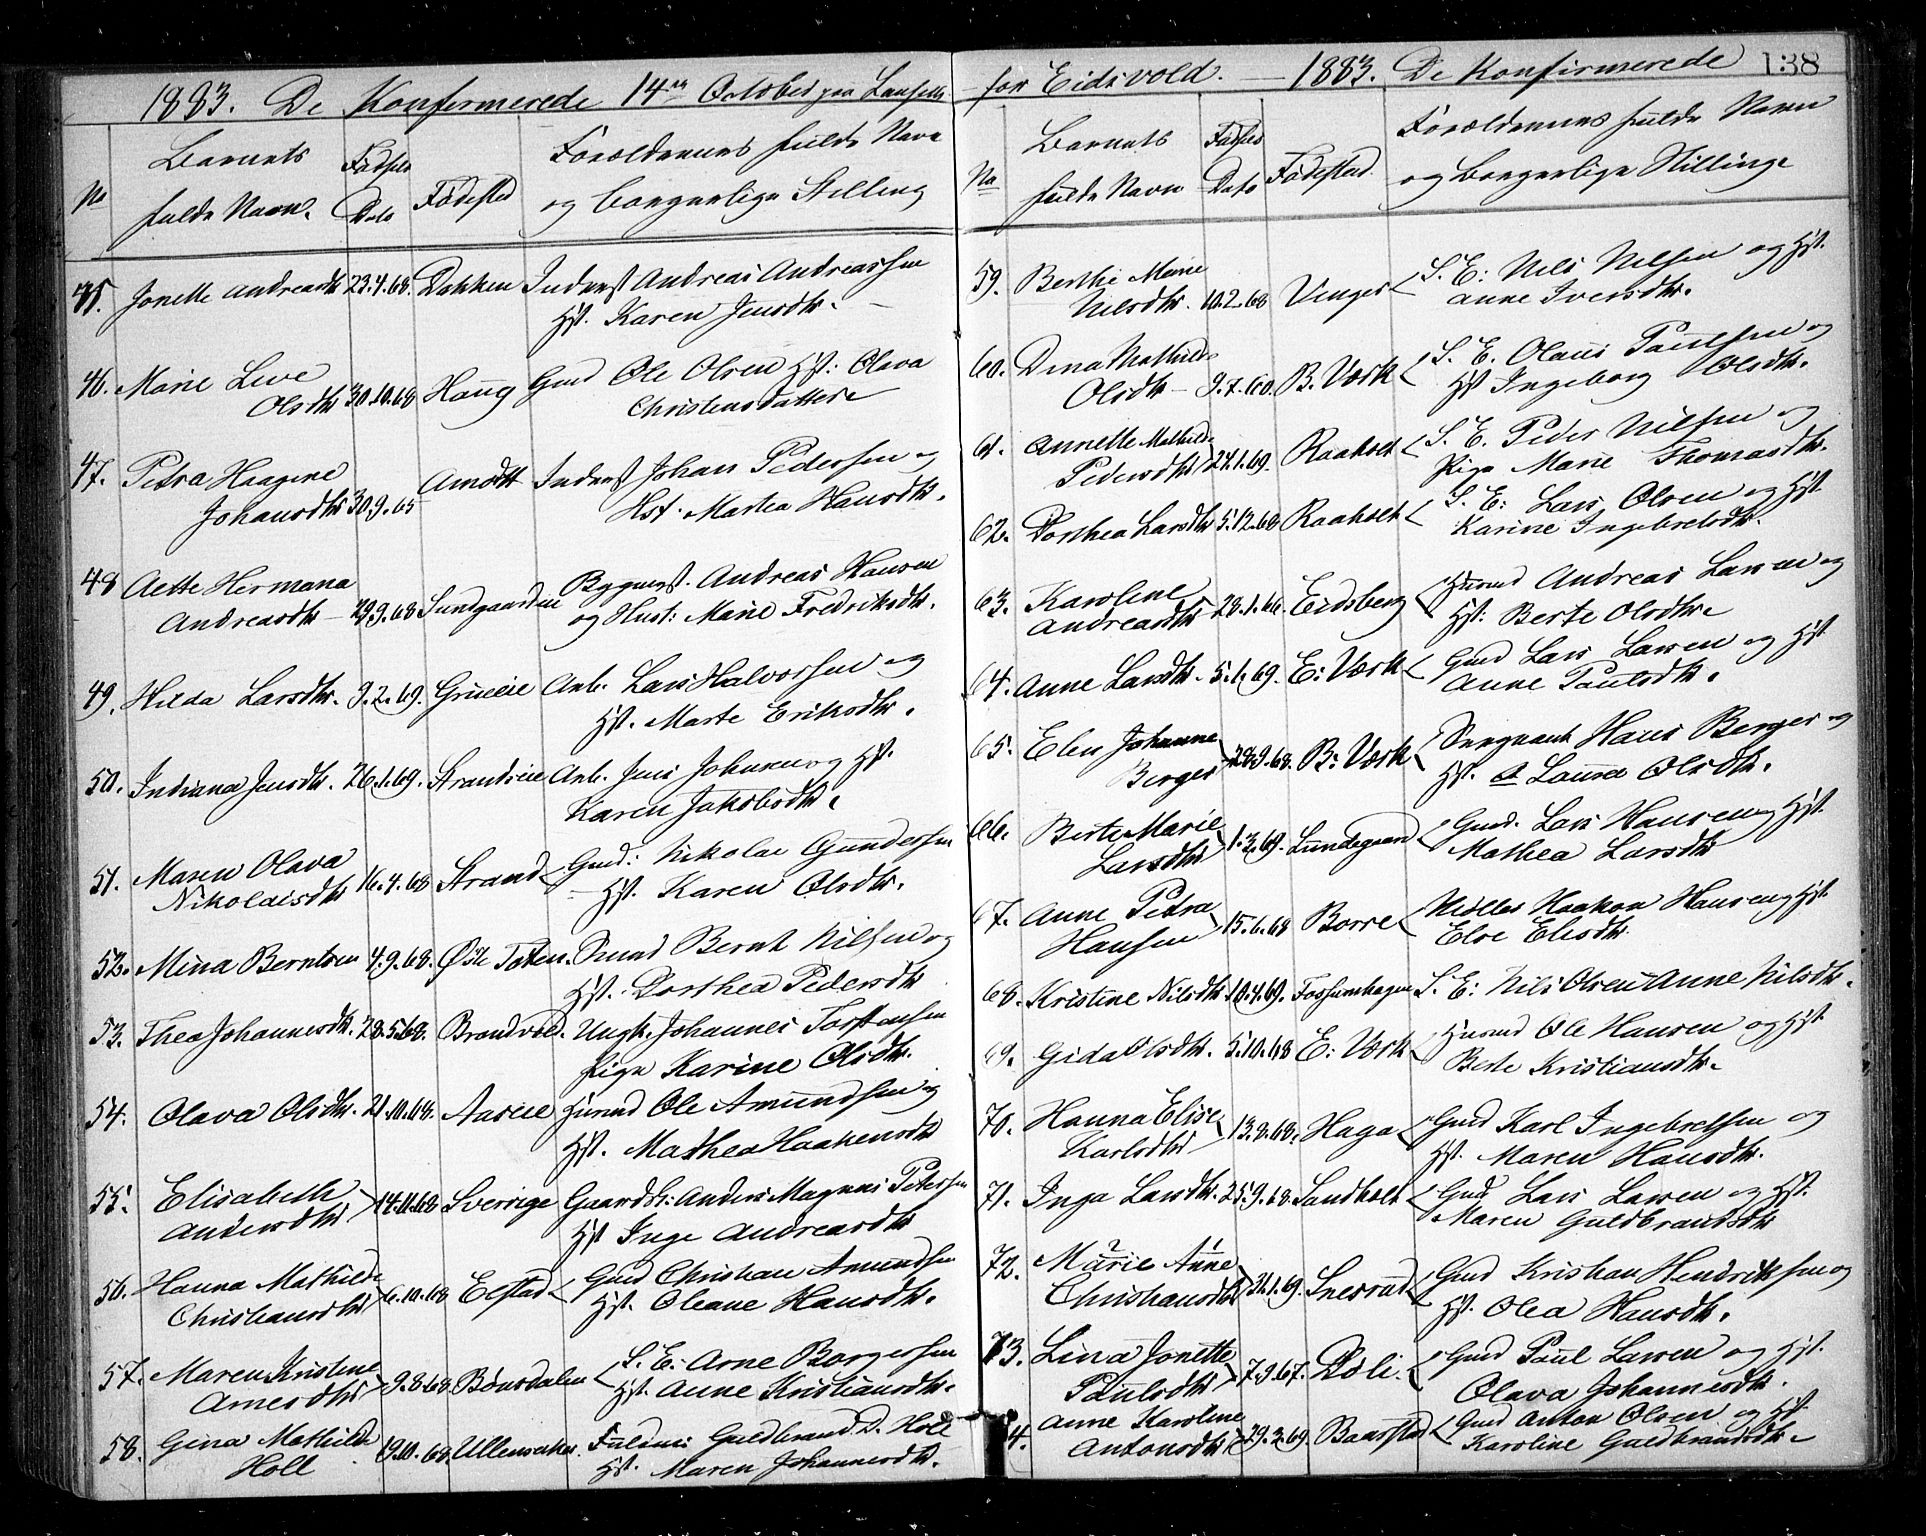 1883. De Konfirmerede 14de October paa
No
Barnets
fulde Navn.
Fødsels
Dato
Fødested
Forældrenes fulde Navn
og borgerlige Stilling
45. Jonette Andreasdtr 23.4.68. Dokken Inderst Andreas Andreassen
Hst. Karen Jensdtr.
46. Marie Live
Olsdtr 30.10.68 Haug Gmd Ole Olsen Hst: Olava
Christensdatter
47. Petra Haagine
Johansdtr 30.9.65 Inderst Johan Pedersen og
Hst. Martea Hansdtr.
48 Aette Hermana
Andreasdtr 29.9.68 Sundgaardeie Bygmst. Andreas Hansen
og Hust: Marie Fredriksdtr.
49. Hilda Larsdtr. 9.2.69. Grueeie Arb. Lars Halvorsen og
Hst. Marte Eriksdtr.
50. Indiana Jensdtr. 26.1.69. Strandeie Arb. Jens Johnsen og Hst.
Karen Jakobsdtr.
51. Maren Olava
Nikolaisdtr 16.4.68 Strand Gmd: Nikolai Gundersen
Hst. Karen Olsdtr.
52. Mina Berntsen 4.9.68. Øste Toten. Smed Bernt Nilsen og
Hst. Dorthea Pedersdtr
53. Thea Johannesdtr. 28.5.68. Brandvold. Ungk. Johannes Torstensen
Pige Karine Olsdtr.
54. Olava Olsdtr. 21.10.68. Aaseie Husmd Ole Amundsen og
Hst. Mathea Haakensdtr
55. Elisabeth
Andersdtr 14.11.68 Sverrige Gaardsb: Anders Magnus Petersen
Hst Inge Andreasdtr
56. Hanna Mathilde
Christiansdtr 6.10.68 Elstad Gmd Christian Amundsen
Hst. Oleane Hansdtr.
57. Maren Kristine
Arnesdtr 9.8.68. Bønsdalen S. E: Arne Borgersen
Hst. Anne Kristiansdtr.
58. Gina Mathilde
Holl 19.10.68 Ullensaker. Guldbrand D. Holl
Hst. Maren Johannesdtr.
for Eidsvold. — 1883. De Konfirmerede 138
No
Barnets
fulde Navn
Fødsels
Dato
Fødested.
Forældrenes fulde Navn
og borgerlige Stilling
59. Berthe Marie
Nilsdtr. 10.2.68 Venger S. E: Nils Nilsen og Hst.
Anne Iversdtr.
60. Dina Mathilde
Olsdtr 9.7.60. B. Værk S. E. Olaus Paulsen og
Hst Ingeborg Olsdtr.
61. Annette Mathilde
Pedersdtr 24.1.69. Raaholt S. E. Peder Nilsen og
Pige Marie Thomasdtr.
62. Dorthea Larsdtr 5.12.68 Raaholt S. E: Lars Olsen og Hst
Karine Ingebretsdtr.
63. Karoline
Andreasdtr 28.1.66 Eidsberg Husmd Andreas Larsen og
Hst: Berte Olsdtr
64. Anne Larsdtr. 5.1.69. E: Værk Gmd Lars Larsen og Hst
Anne Paulsdtr.
65. Elen Johanne
Berger 28.9.68. B: Værk Sergeant Hans Berger og
Hst. Laura Olsdtr.
66. Berte Marie
Larsdtr 1.3.69. Lundegaard Gmd. Lars Hansen og Hst.
Mathea Larsdtr
67. Anne Petra
Hansen 15.6.68 Borre Møller Haakon Hansen og Hst.
Eloe Elisdtr.
68. Kristine Nilsdtr 18.4.69. Fossumhagen S. E: Nils Olsen Anne Nilsdtr.
69. Gida Olsdtr. 5.10.68 E: Værk Husmd Ole Hansen og Hst
Berte Kristiansdtr.
70. Hanna Elise
Karlsdtr 13.9.68. Haga Gmd Karl Ingebretsen og
Hst. Maren Hansdtr.
71. Inga Larsdtr. 25.9.68. Sandholt Gmd Lars Larsen og Hst.
Maren Guldbrandsdtr
72. Marie Anne
Christiansdtr 21.1.69. Snesrud Gmd Kristian Hendriksen og
Hst. Olea Hansdtr.
73. Lina Jonette
Paulsdtr 7.9.67. Døli Gmd Paul Larsen og Hst.
Olava Johannesdtr.
4. Anne Karoline
Antonsdtr 29.3.69. Baarstad Gmd Anton Olsen og Hst
Karoline Guldbrandsdtr.